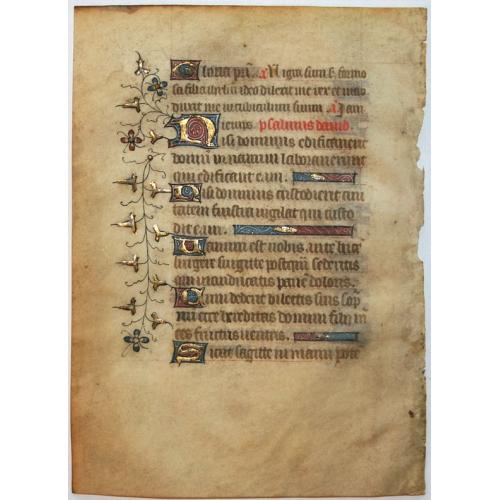 Gloria pri. A Nigra sum s; formo
sa filia ihrlm ideo dilexit me rex et in
duxit me in cubiculum suum. A Iam
hiems psalmus dauid.
Nisi dominus edificauerit
domū in uanum laborauerunt
qui edificant eam.
Nisi dominus custodierit ciui
tatem frustra uigilat qui custo
dit eam.
Uanum est uobis ante luce
surgere surgite postq̄m sederitis
qui manducatis panē doloris.
Cum dederit dilectis suis sop̄
nū ecce hereditas domini filii m
ces fructus uentris.
Sicut sagitte in manu pote